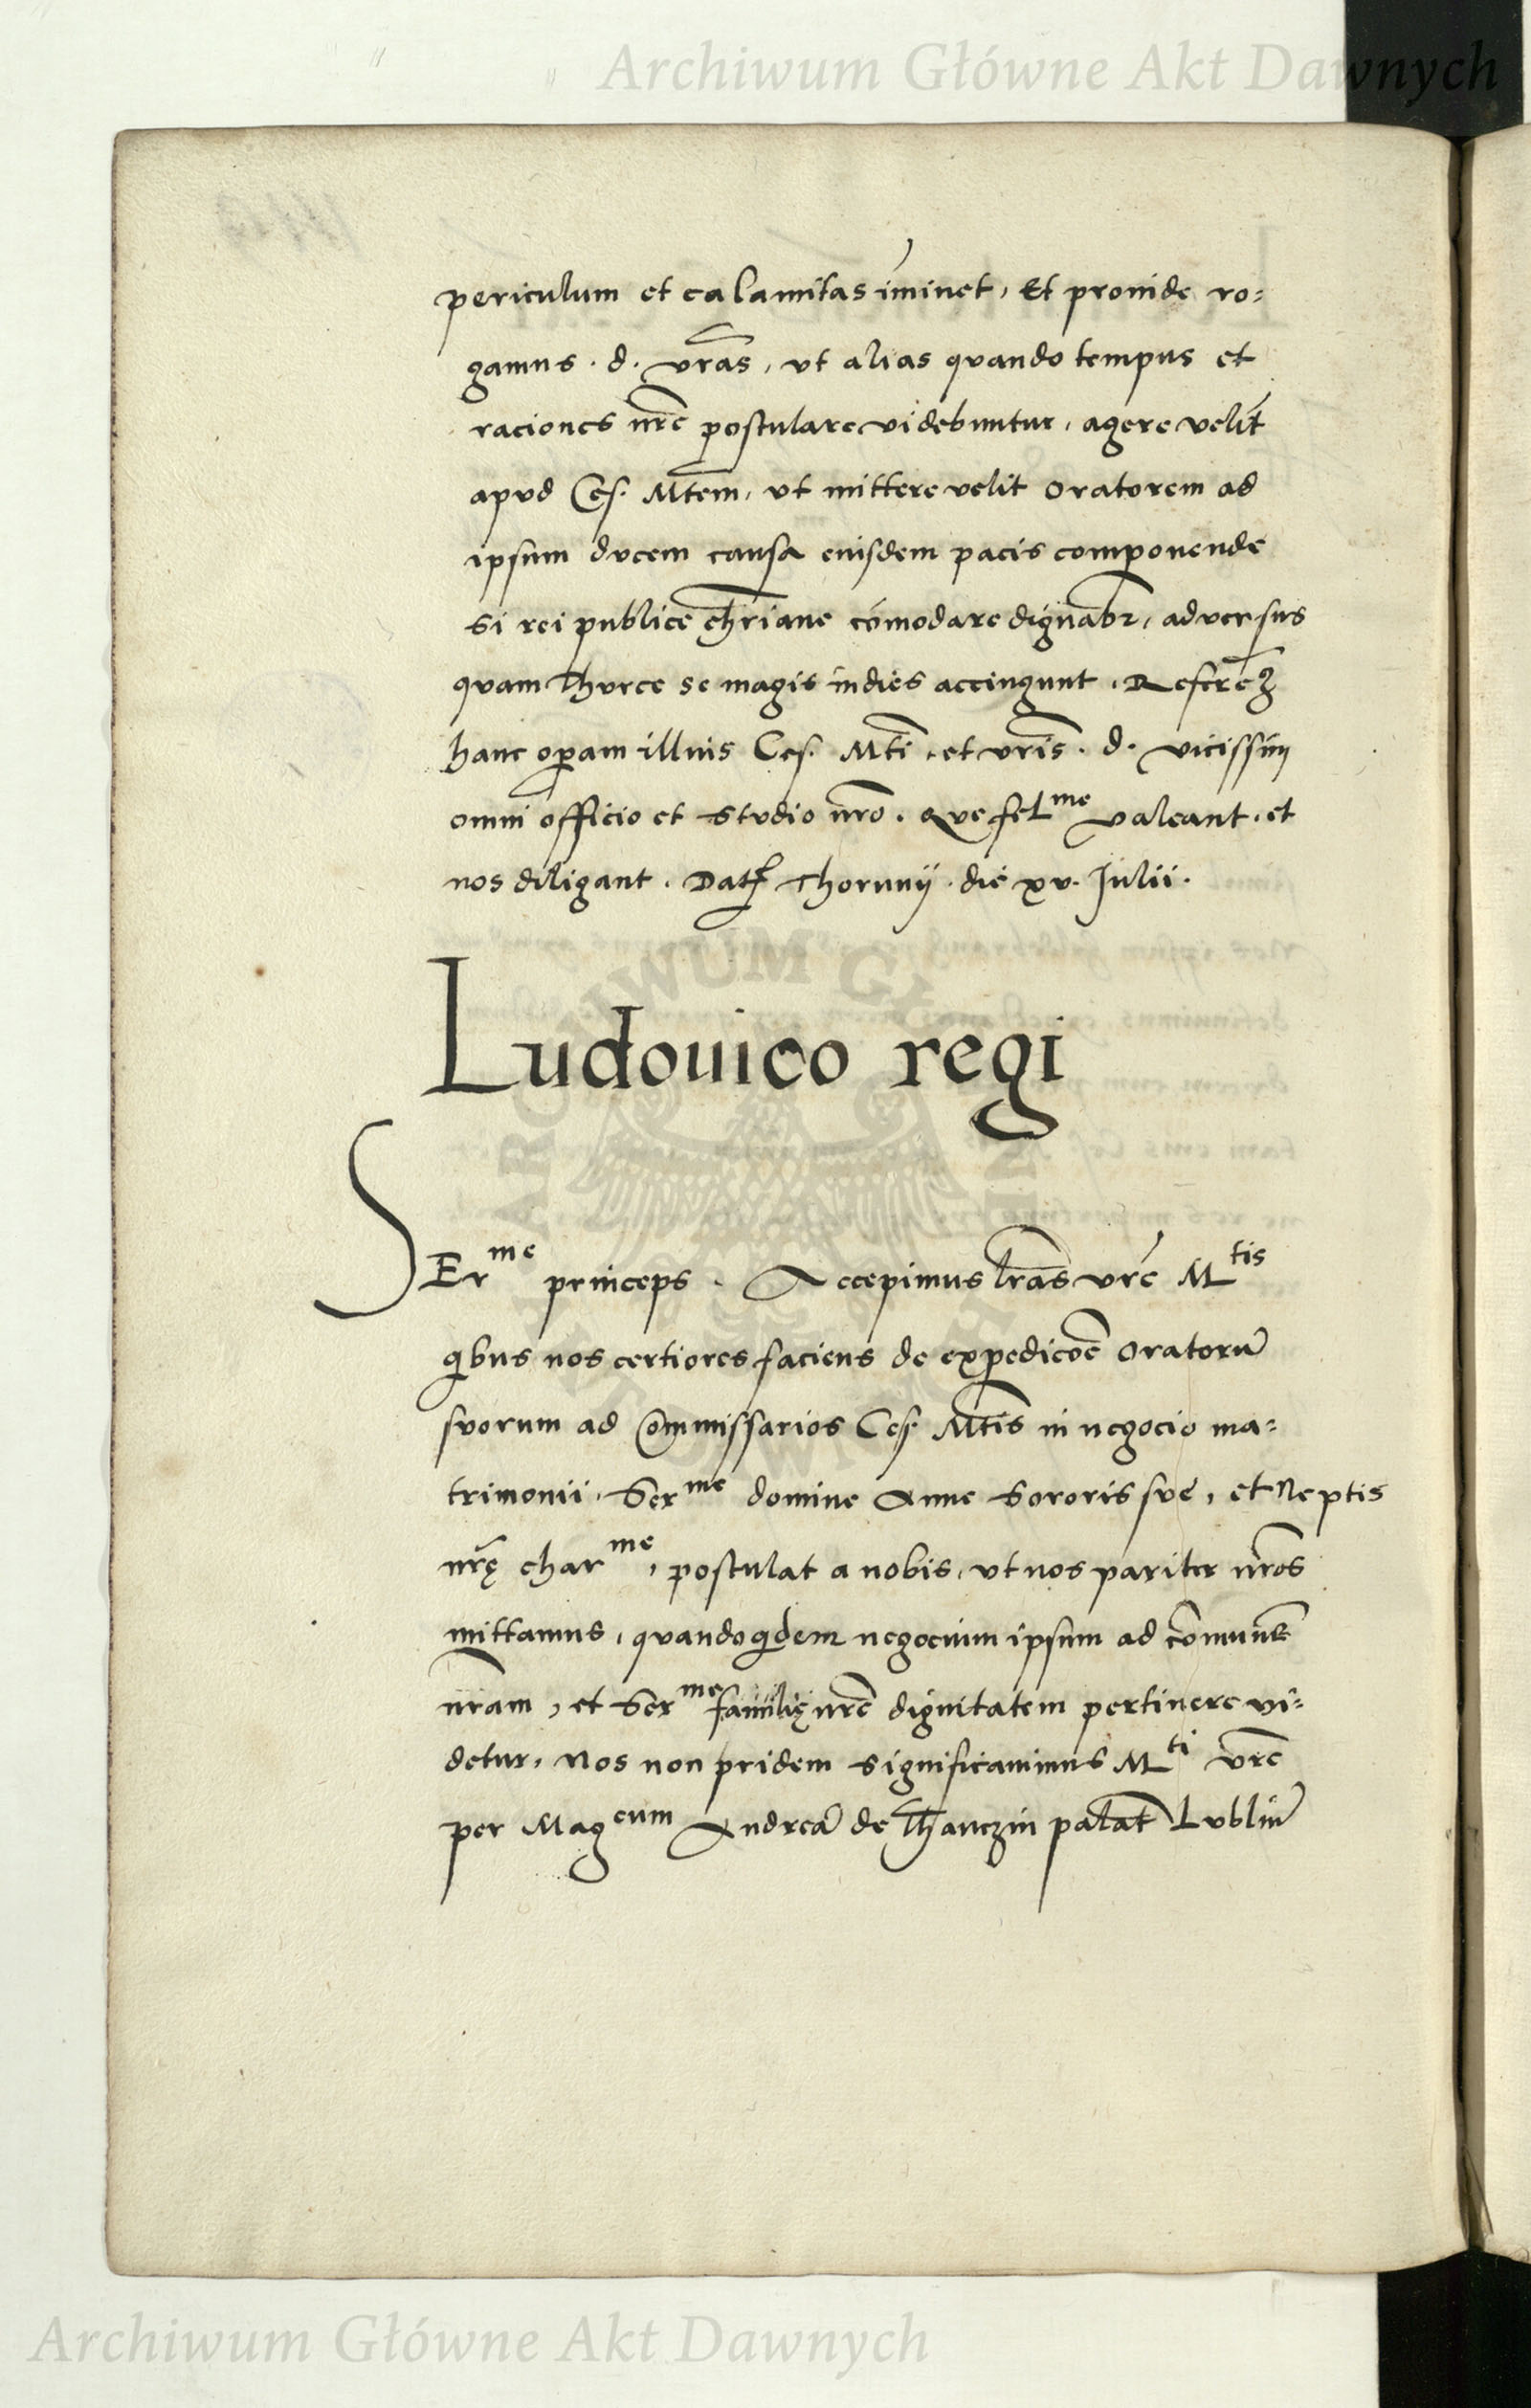 Archiwum Główne Akt Dawnych
periculum et calamitas im̄inet, Et proinde ro=
gamus . d . vr̄as, vt alias quando tempus et
raciones nr̄e postulare videbuntur, agere velīt
apvd Ces. Mt̄em, vt mittere velit oratorem ad
ipsum dvcem causa euisdem pacis componende
si rei publice chr̄iane com̄odare dignabr̄, adversus
qvam Thvrce se magis indies accingunt . Referem̄ꝫ
hanc oꝑam illius Ces. Mt̄i . et vr̄is . d . vicissim
omni officio et stvdio nr̄o . Qve fel^me valeant . et
nos diligant . Dat̄ Thorunij . die xv. Julii .
Ludouico regi
SEr^me princeps . Accepimus lr̄as vr̄e M^tis
qͥbus nos certiores faciens de exꝑedicoē oratorū
svorum ad Commissarios Ces. Mt̄is in negocio ma=
trimonii, Ser^me domine Anne Sororis sve, et Neptis
nr̄ę char^me, postulat a nobis, vt nos pariter nr̄os
mittamus, qvandoqͥdem negocium ipsum ad com̄unē
nr̄am, et Ser^me familię nr̄e dignitatem pertinere vi=
detur, Nos non pridem significauimus M^ti vr̄e
per Mag^cum Andreā de Thanczin palat̄ Lvblin̄
ARCHIWUM GŁ
Archiwum Główne Akt Dawnych